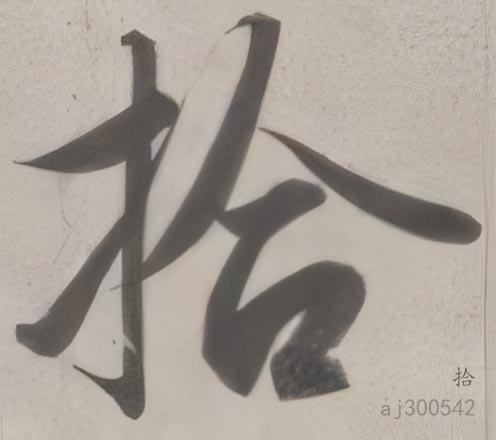 拾
拾
aj300542